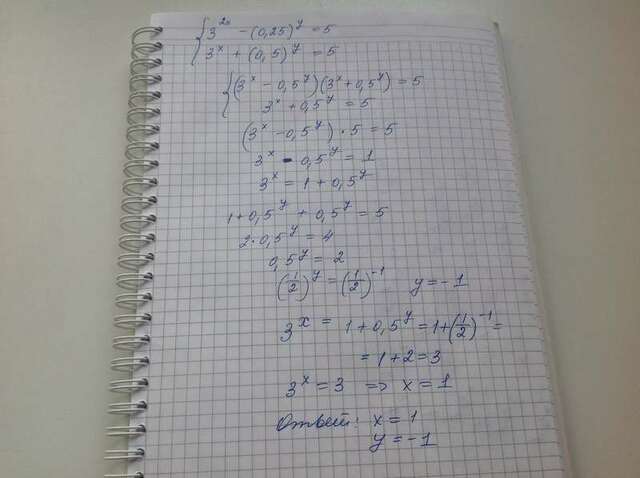 {3^{2x} - (0,25)^y = 5
3^x + (0,5)^y = 5
{(3^x - 0,5^y)(3^x + 0,5^y) = 5
3^x + 0,5^y = 5
(3^x - 0,5^y) · 5 = 5
3^x - 0,5^y = 1
3^x = 1 + 0,5^y
1 + 0,5^y + 0,5^y = 5
2 · 0,5^y = 4
0,5^y = 2
(1/2)^y = (1/2)^{-1} y = -1
3^x = 1 + 0,5^y = 1 + (1/2)^{-1} =
= 1 + 2 = 3
3^x = 3 => x = 1
Ответ: x = 1
y = -1